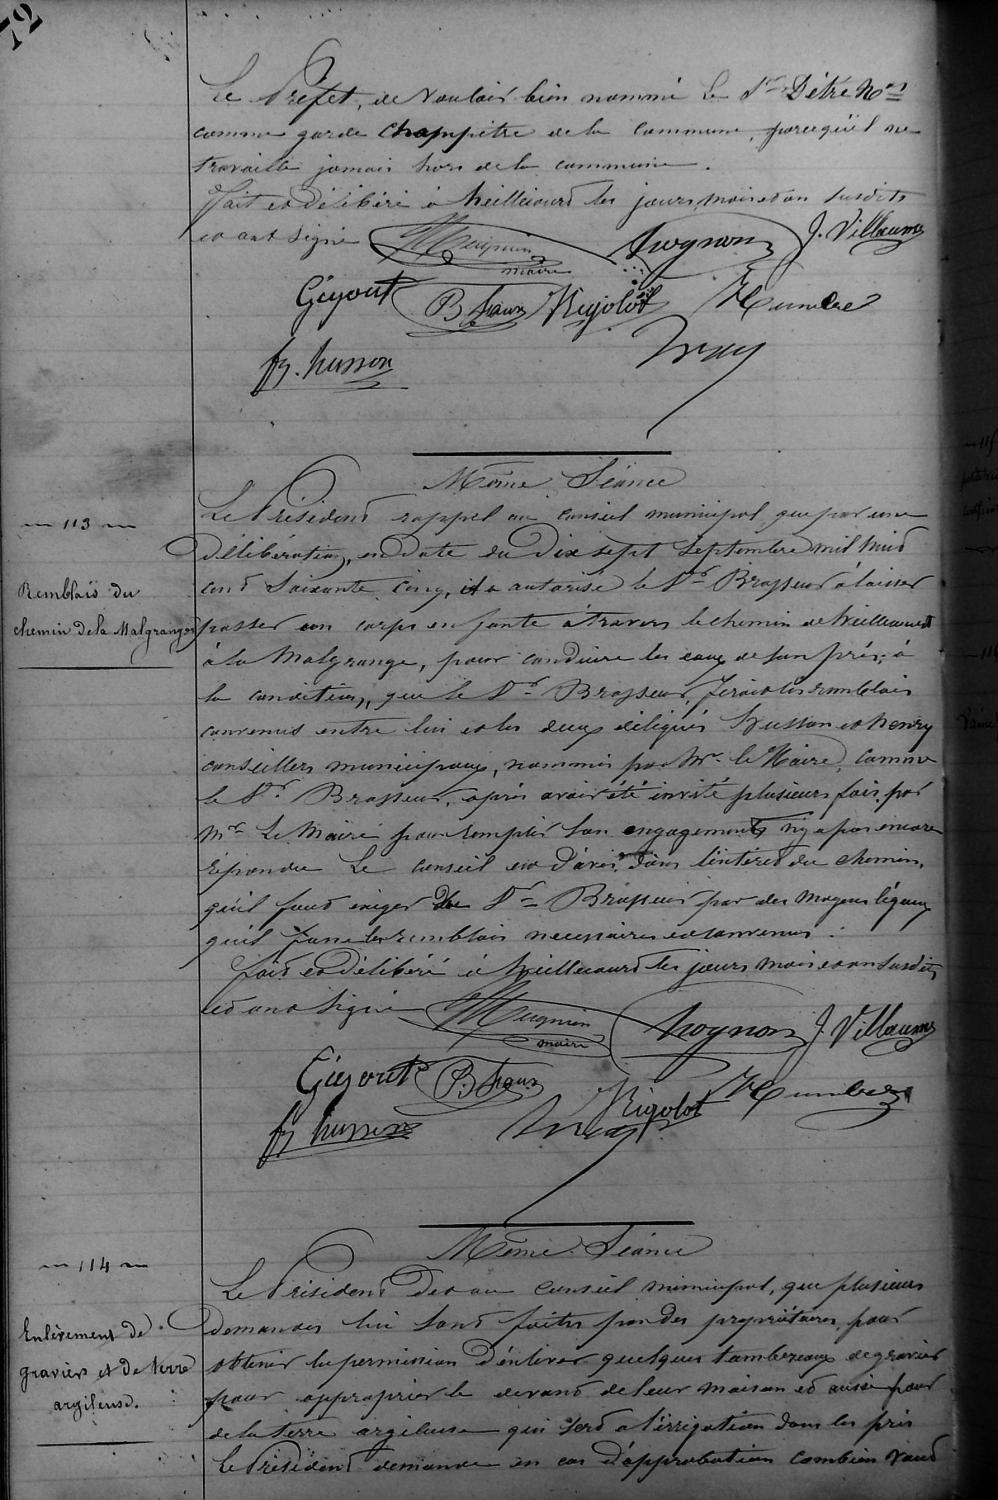 72
Le Préfet, de vouloir bien nommé le Sr Détré Non
comme garde champpêtre de la commune, parcequ'il ne
travaille jamais hors de la commune.
Fait et délibéré à Heillecourt les jours, mois et an susdits
et ont signé
maire
Hognon
J. Villaume
Guyout
B. Haux
Rigolot
Humbert
fz. husson
Même Séance
— 113 —
Remblais du
chemin de la Malgrange
Le Président rappel au conseil municipal que par une
délibération, en date du Dix sept Septembre mil huit
cent Soixante cinq, il a autorisé le Sr Brasseur à laisser
passer un corps en fonte à travers le chemin de Heillecourt
à la Malgrange, pour conduire les eaux de son prés, à
la condition, que le Sr Brasseur, ferait les remblais
convenus entre lui et les deux délégués Husson et henry
conseillers municipaux, nommés par Mr le Maire, comme
le Sr Brasseur, après avoir été invité plusieurs fois, par
Mr Le Maire pour remplir son engagements n'y a pas encore
répondu Le conseil est d'avis, dans l'intéret du chemin,
qu'il faut exiger du Sr Brasseur par des moyens légaux
qu'il fasse les remblais necessaires et convenus.
Fait et délibéré à Heillecourt les jours mois et an susdits
et ont signé
maire
Hognon
J. Villaume
Guyout
B. Haux
Rigolot
Humbert
fz husson
Même Séance
— 114 —
Enlèvement de
graviers et de terre
argileuse.
Le Président Dit au conseil municipal, que plusieurs
demandes lui sont faites par des propriétaires, pour
obtenir la permission d'enlever quelques tombereaux de gravier
pour approprier le devant de leur maison et aussi pour
de la terre argileuse qui sert a l'irrigation dans les prés
Le Président demande en cas d'approbation combien vaud